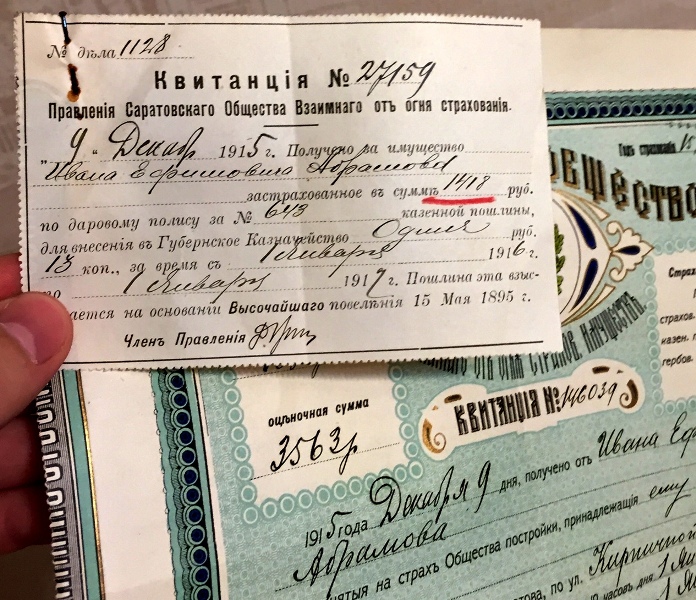 № дѣла 1128
Квитанція № 27159
Правленія Саратовскаго Общества Взаимнаго отъ огня страхованія.
„9“ Декабр 1915 г. Получено за имущество
Ивана Ефимовича Абрамова
застрахованное въ суммѣ 1418 руб.
по даровому полису за № 643 казенной пошлины,
для внесенія въ Губернское Казначейство Один руб.
13 коп., за время съ 1 Января 1916 г.
по 1 Января 1917 г. Пошлина эта взыс-
кается на основаніи Высочайшаго повелѣнія 15 Мая 1895 г.
Членъ Правленія
Годъ страхованія
ОБЩЕСТВО
Страх
страхов.
казен. п
гербов.
ВЗАИМНАГО ОТЪ ОГНЯ СТРАХОВ. ИМУЩЕСТВЪ
КВИТАНЦІЯ № 146039
оцѣночная сумма
3563 р
1915 года Декабря 9 дня, получено отъ Ивана Еф
Абрамова
принятыя на страхъ Общества постройки, принадлежащія ему
Саратова, по ул. Кирпичной
часовъ дня 1 Ян
1 Ян